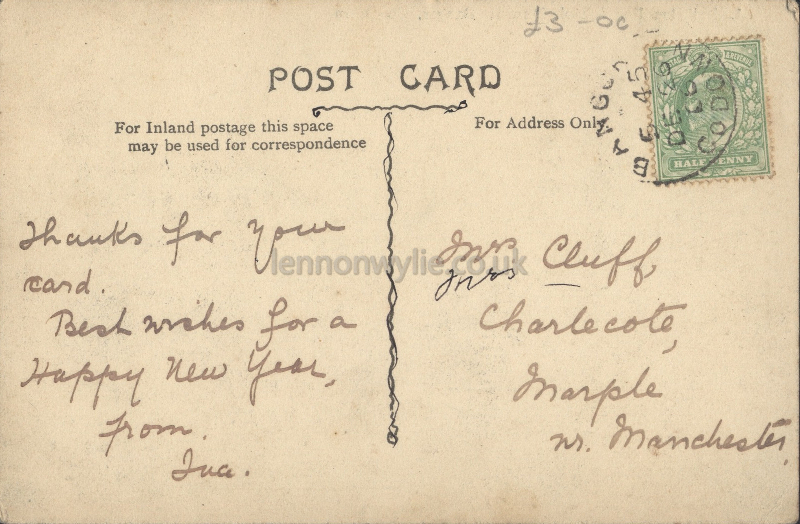 £3-00
POST CARD
For Inland postage this space
may be used for correspondence
For Address Only
BANGOR
5 45
DE 29
CO DOWN
HALFPENNY
Thanks for your
card.
Best wishes for a
Happy New Year,
from.
Ina.
Mrs Cluff,
Mrs
Charlecote,
Marple
nr. Manchester.
lennonwylie.co.uk